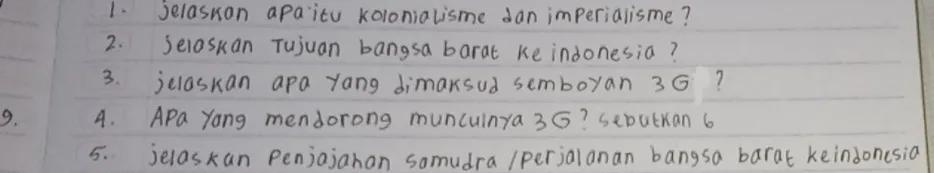 1. jelaskan apa itu kolonialisme dan imperialisme?
2. Jelaskan Tujuan bangsa barat ke indonesia?
3. jelaskan apa yang dimaksud semboyan 3G?
9. 4. APa yang mendorong munculnya 3G? sebutkan 6
5. jelaskan Penjajahan samudra / perjalanan bangsa barat keindonesia